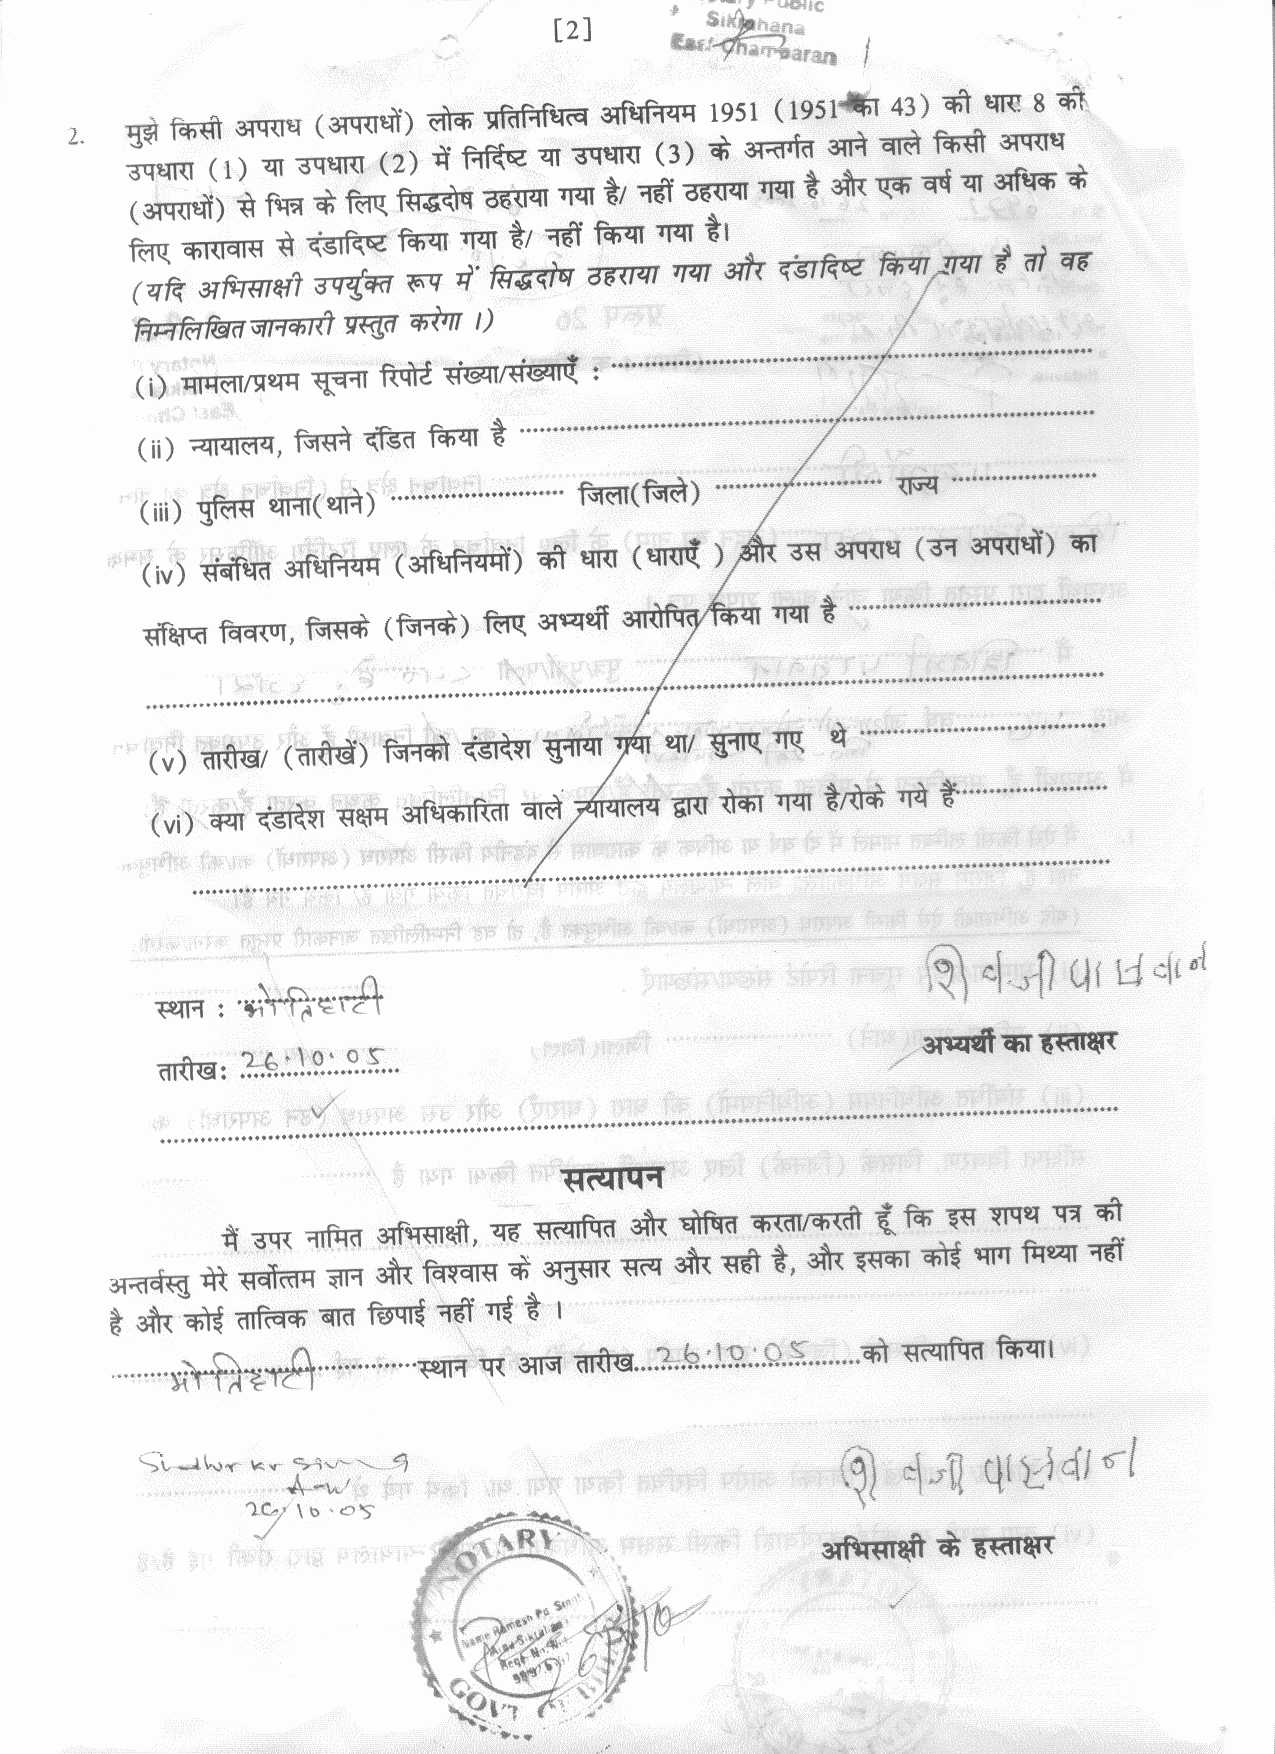 [2]
Sikrahana
East Champaran
2. मुझे किसी अपराध (अपराधों) लोक प्रतिनिधित्व अधिनियम 1951 (1951 का 43) की धारा 8 की
उपधारा (1) या उपधारा (2) में निर्दिष्ट या उपधारा (3) के अन्तर्गत आने वाले किसी अपराध
(अपराधों) से भिन्न के लिए सिद्धदोष ठहराया गया है/ नहीं ठहराया गया है और एक वर्ष या अधिक के
लिए कारावास से दंडादिष्ट किया गया है/ नहीं किया गया है।
(यदि अभिसाक्षी उपर्युक्त रूप में सिद्धदोष ठहराया गया और दंडादिष्ट किया गया है तो वह
निम्नलिखित जानकारी प्रस्तुत करेगा ।)
(i) मामला/प्रथम सूचना रिपोर्ट संख्या/संख्याएँ :
(ii) न्यायालय, जिसने दंडित किया है
(iii) पुलिस थाना(थाने) जिला(जिले) राज्य
(iv) संबंधित अधिनियम (अधिनियमों) की धारा (धाराएँ ) और उस अपराध (उन अपराधों) का
संक्षिप्त विवरण, जिसके (जिनके) लिए अभ्यर्थी आरोपित किया गया है
(v) तारीख/ (तारीखें) जिनको दंडादेश सुनाया गया था/ सुनाए गए थे
(vi) क्या दंडादेश सक्षम अधिकारिता वाले न्यायालय द्वारा रोका गया है/रोके गये हैं
शिवजी पासवान
स्थान : मोतिहारी
अभ्यर्थी का हस्ताक्षर
तारीख: 26.10.05
सत्यापन
मैं उपर नामित अभिसाक्षी, यह सत्यापित और घोषित करता/करती हूँ कि इस शपथ पत्र की
अन्तर्वस्तु मेरे सर्वोत्तम ज्ञान और विश्वास के अनुसार सत्य और सही है, और इसका कोई भाग मिथ्या नहीं
है और कोई तात्विक बात छिपाई नहीं गई है ।
मोतिहारी स्थान पर आज तारीख 26.10.05 को सत्यापित किया।
26.10.05
शिवजी पासवान
अभिसाक्षी के हस्ताक्षर
NOTARY
Name Ramesh Pd. Singh
GOVT OF BIHAR